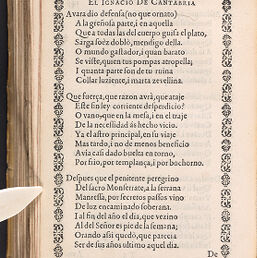 EL IGNACIO DE CANTABRIA
Avara dio defensa (no que ornato)
A la greñosa parte, i en aquella
Que a todas las del cuerpo guisa el plato,
Sarga soez doblò, mendigo della.
O mundo gastador, i quan barato
Se viste, quien tus pompas atropella;
I quanta parte son de tu ruina
Collar luziente, i marta zevellina.
Que fuerça, que razon avrà, que ataje
Este sin ley corriente desperdicio?
O vano, que en la mesa, i en el traje
De la necessidad ás hecho vicio.
Ya el astro principal, en su viaje
Mas tardo, i no de menos beneficio
Avia casi dado buelta en torno,
Por frio, por templança, i por bochorno.
Despues que el penitente peregrino
Del sacro Monserrate, a la serrana
Manressa, por secretos passos vino
De luz encaminado soberana.
I al fin, del año el dia, que vezino
Al del Señor es pie de la semana;
Orando assi quedò, que parecia
Ser de sus años ultimo aquel dia.
De